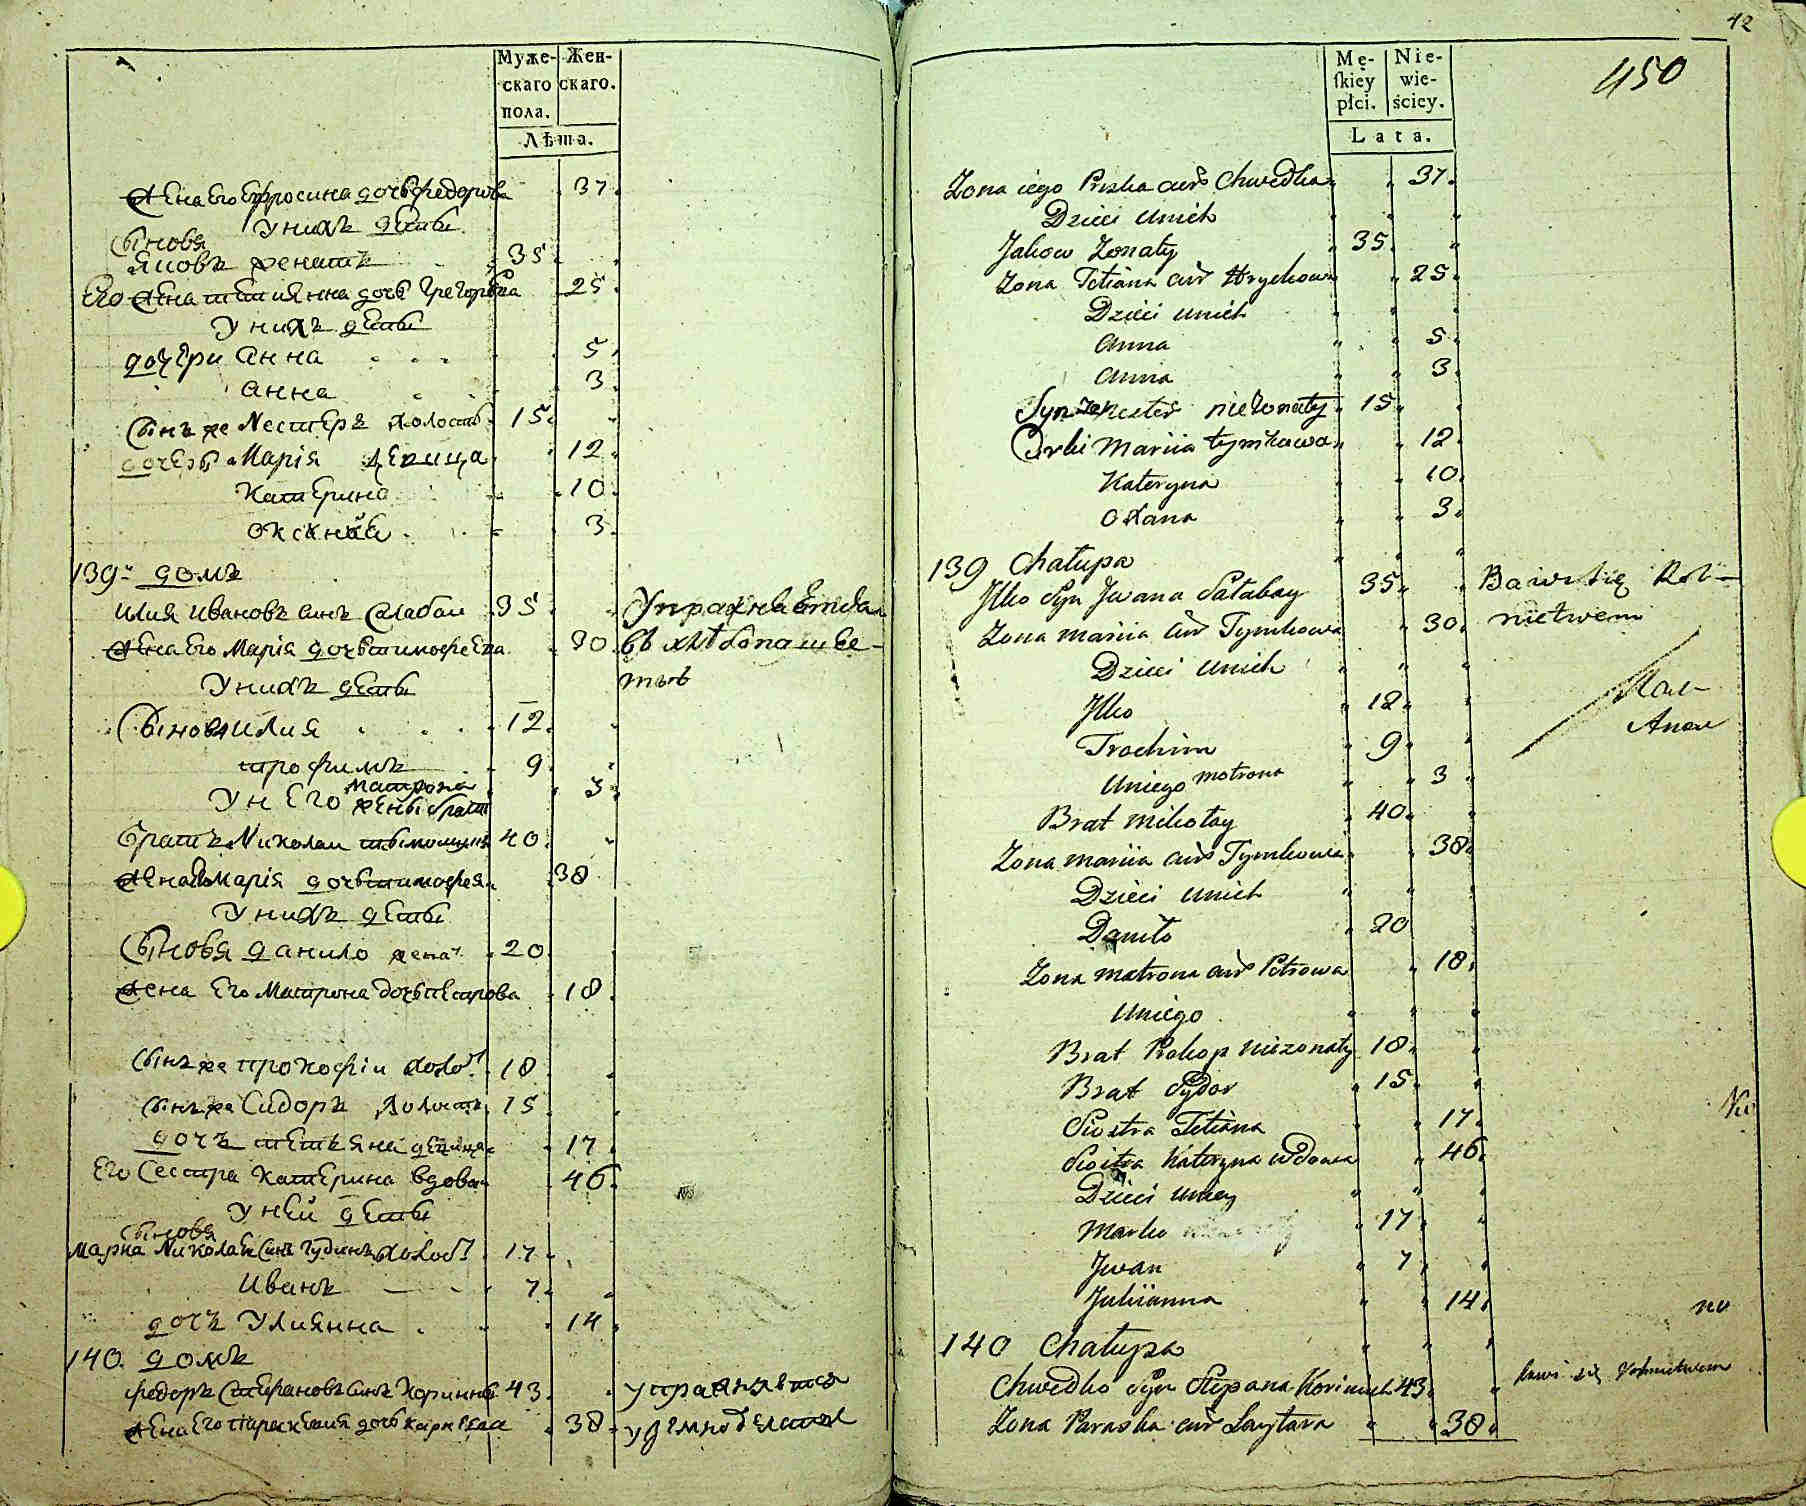 Муже-
скаго
пола.
Жен-
скаго.
Лѣта.
Жена Его Ефросина дочь федорова 37
У нихъ дѣти
Сыновя
Яковъ женатъ 35
Его Жена татиянна дочь Грегорева 25
У нихъ дети
дочери Анна 5
Анна 3
Сынъ же Нестеръ холостъ 15
дочерь Марія девица 12
Катерина 10
Оксанна 3
139. домъ
Илия Ивановъ синъ Салабаи 35
Жена Его Марія дочь тимофеева 30 въ хлѣбопаше-
У нихъ дети
Сыновя Илия 12
трофимъ 9
Матрона 3
У н Его жены брат
братъ Николаи 40
Жена Марія дочь тимофея 38
У нихъ дети
Сыновя данило женат 20
Жена Его Матрона дочь петрова 18
Сынъ же прокофіи холо 18
Сынъ же Сидоръ холостъ 15
дочъ девица 17
Его Сестра Катерина вдова 46
У ней дети
Сыновя
Марка Николаи Синъ холост 17
Иванъ 7
дочъ Улиянна 14
140. домъ
федоръ Стефановъ синъ Коринны 43
Жена Его параскевия дочь 38
42
450
Mę-
skiey
płci.
Nie-
wie-
ściey.
Lata.
Zona iego Priska cur Chwedka 37
Dzieci unich
Jakow Zonaty 35
Zona Tetiana cur Hrychowa 25
Dzieci unich
Anna 5
Anna 3
Syn Nester nieżonaty 15
Corki Mariia tymkowa 12
Kateryna 10
Oxana 3
139 Chałupa
Jlko Syn Jwana Sałabay 35 Bawi się Rol-
Zona Mariia cur Tymkowa 30 nictwem
Dzieci unich
Jlko 12
Trochim 9
Uniego Motrona 3
Brat Mikołay 40
Zona Mariia cur Tymkowa 38
Dzieci unich
Daniło 20
Zona Matrona cur Petrowa 18
Uniego
Brat Prokop nieżonaty 18
Brat Sydor 15
Siostra Tetiana 17
Siostra Kateryna wdowa 46
Dzieci uniey
Marko 17
Jwan 7
Juliianna 14
140 Chałupa
Chwedko Syn Stepana 43 bawi się Rolnictwem
Zona Paraska cur 38